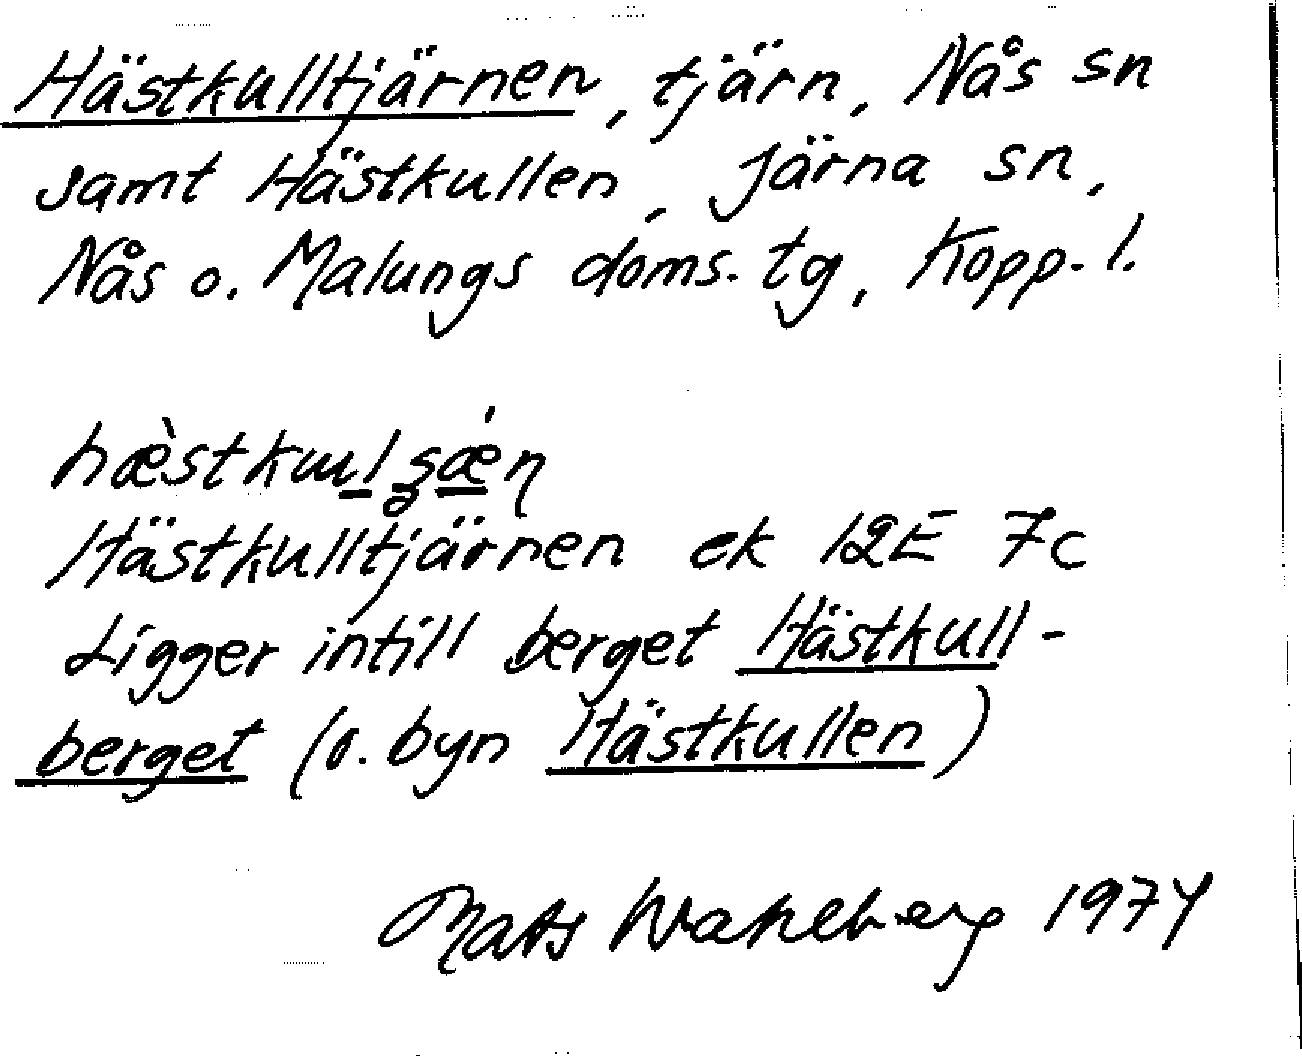 Hästkulltjärnen, tjärn, Nås sn
samt Hästkullen, Järna sn,
Nås o. Malungs doms. tg, Kopp. l.
Hästkulltjärnen ek 12E 7c
Ligger intill berget Hästkull-
berget (o. byn Hästkullen)
Mats Wahlberg 1974